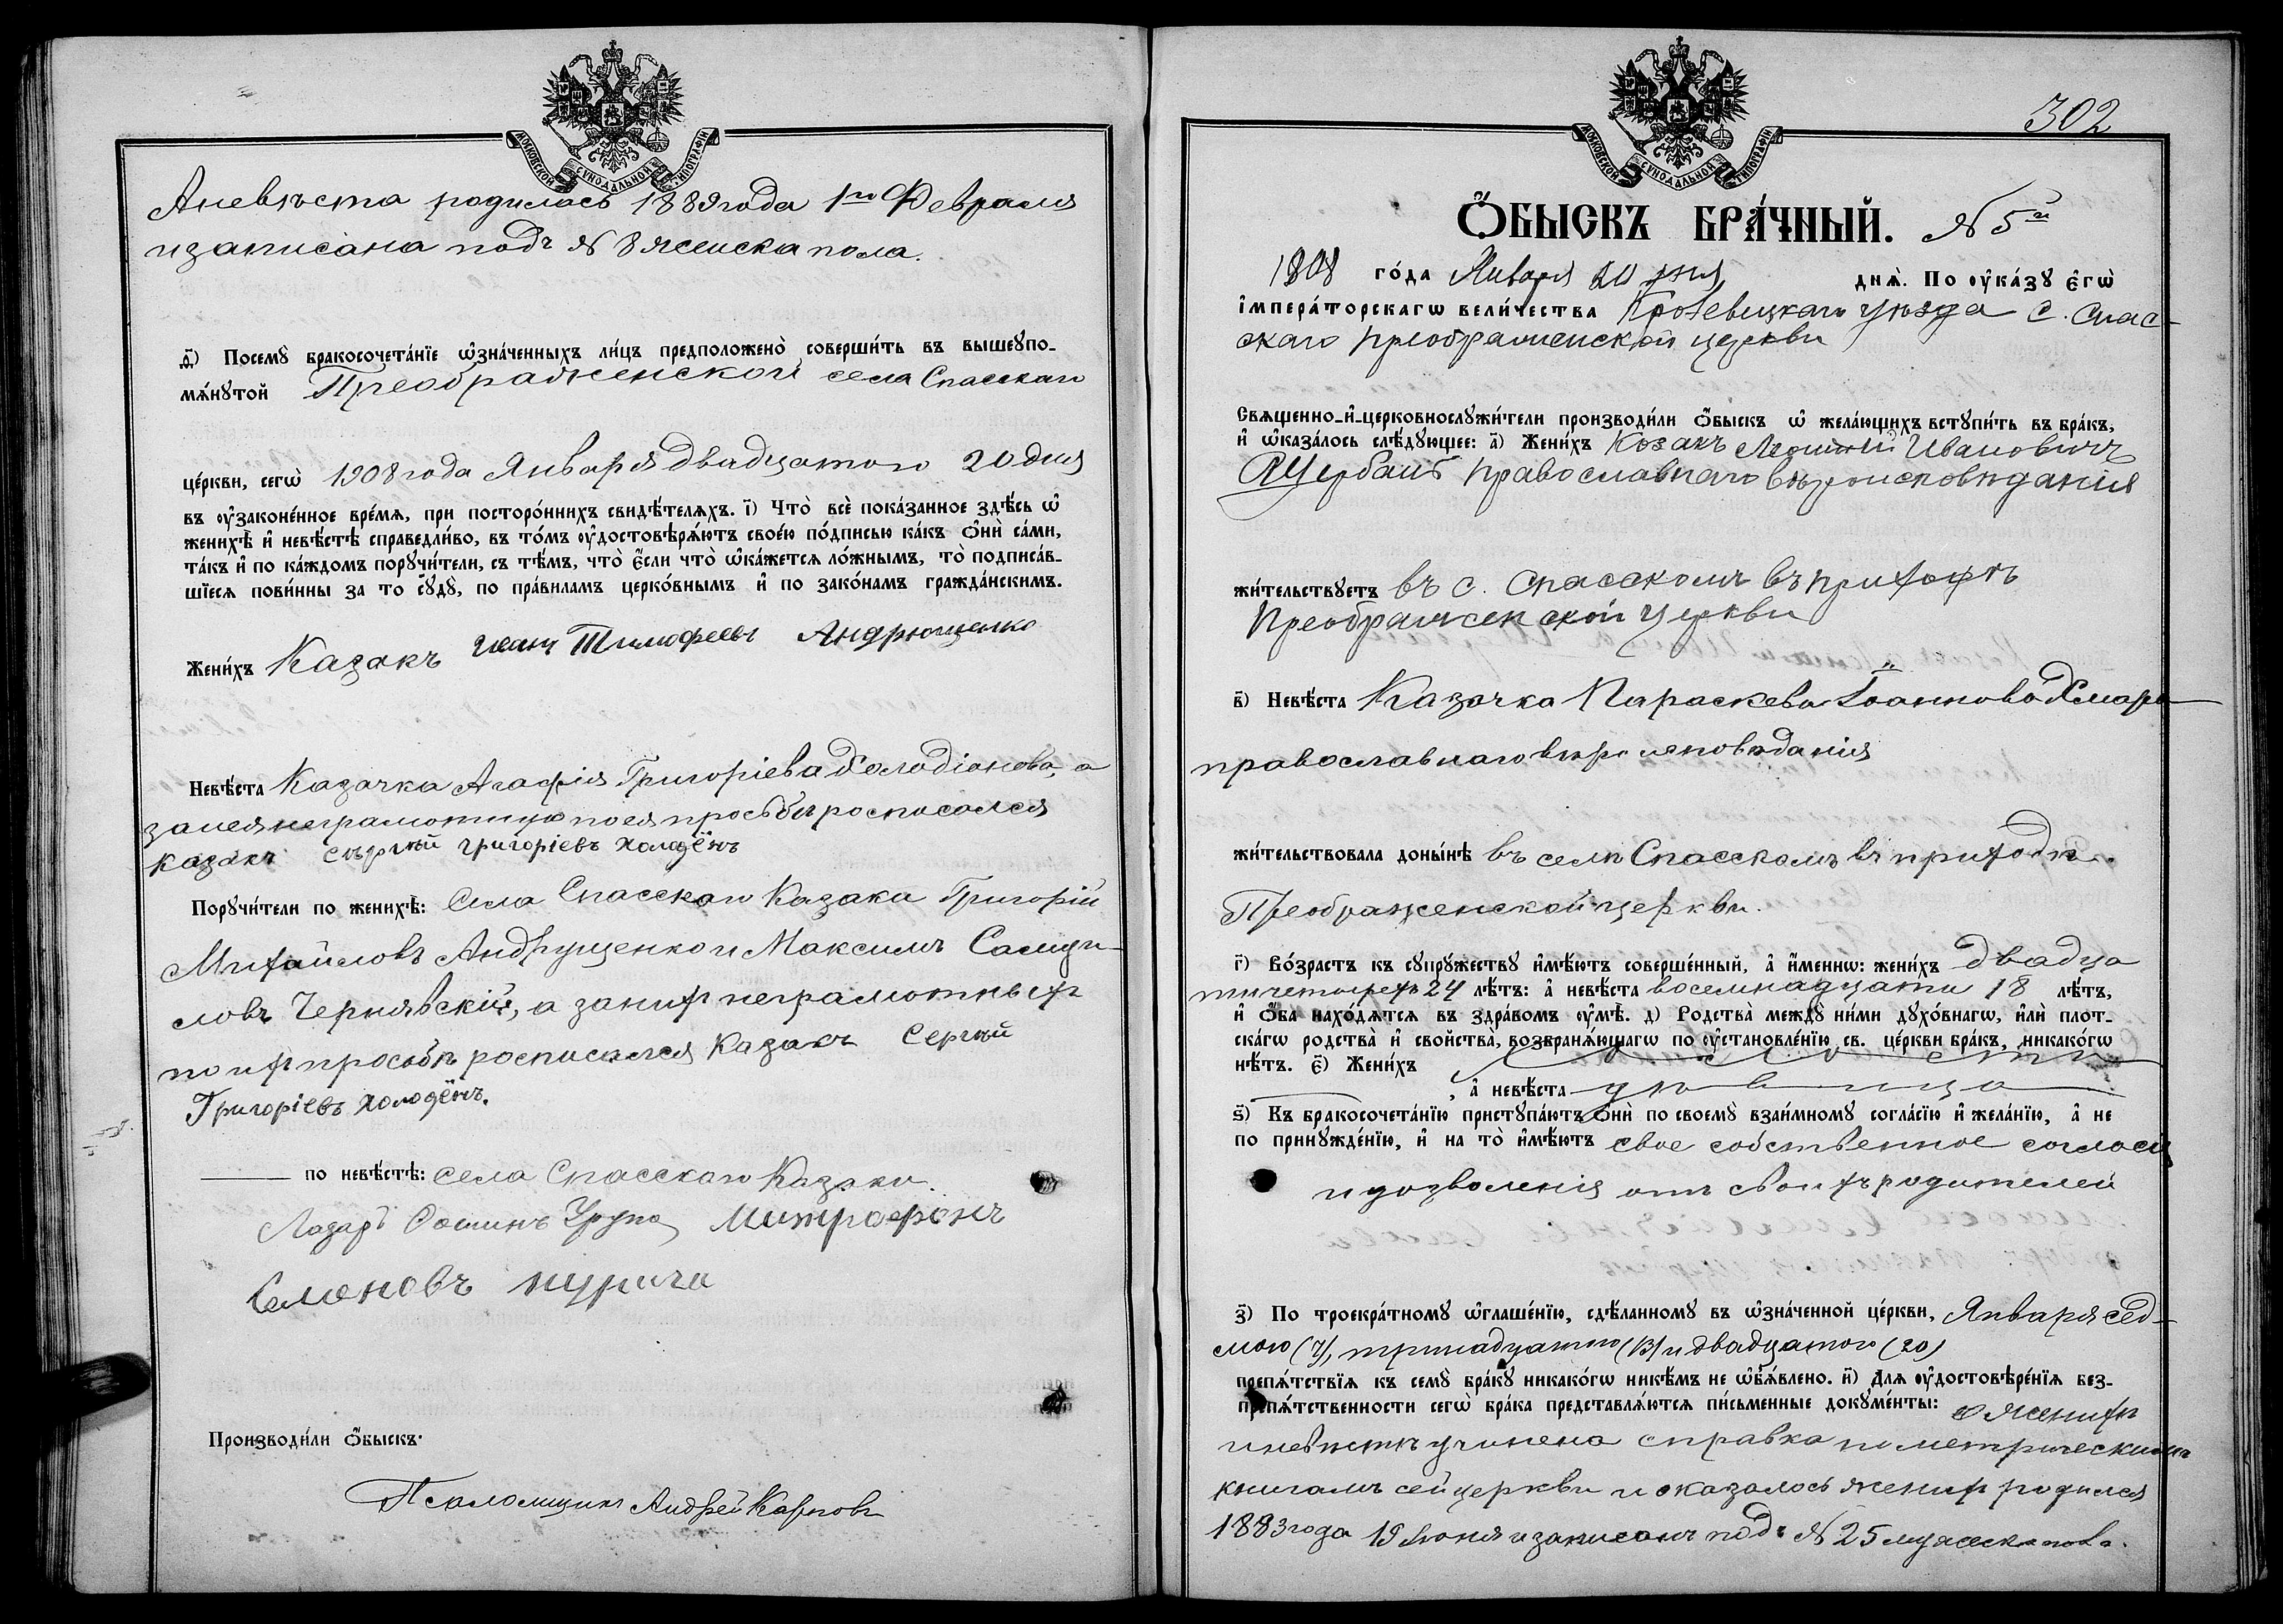 МОСКОВСКОЙ СУНОДАЛЬНОЙ ТИПОГРАФІИ
А невѣста родилась 1889 года 1го Февраля
и записана подъ № 8 женска пола.
д҃) Посемꙋ̀ бракосочета́нїе ѡ҆зна́ченныхъ ли́цъ предположено̀ соверши́ть въ вышеупо-
мѧ́нꙋтой Преображенской села Спасскаго
це́ркви, сегѡ̀ 1908 года Января двадцатого 20 дня
въ ᲂу҆законе́нное вре́мѧ, при посторо́ннихъ свидѣ́телѧхъ. і҃) Что̀ всѐ пока́занное здѣ́сь ѡ҆
женихѣ̀ и҆ невѣ́стѣ справедли́во, въ то́мъ ᲂу҆достовѣрѧ́ютъ свое́ю по́дписью ка́къ ѻ҆нѝ са́ми,
та́къ и҆ по ка́ждомъ порꙋчи́тели, съ тѣ́мъ, что̀ є҆́сли что̀ ѡ҆ка́жетсѧ ло́жнымъ, то̀ подписа́в-
шїесѧ пови́нны за то сꙋдꙋ̀, по пра́виламъ церко́внымъ и҆ по зако́намъ гражда́нскимъ.
Жени́хъ Казакъ Иванъ Тимофеевъ Андрющенко
Невѣ́ста Казачка Агафія Григоріева Холодіонова, а
за нея неграмотную по ея просьбѣ росписался
казакъ Сергѣй Григоріевъ Холодёнъ
Порꙋчи́тели по женихѣ̀: Села Спасскаго Казаки Григорій
Михайловъ Андрущенко и Максимъ Самуи-
ловъ Чернявскій, а за нихъ неграмотныхъ
по ихъ просьбѣ росписался Казакъ Сергѣй
Григоріевъ Холодёнъ.
по невѣ́стѣ: села Спасскаго Казаки.
Лазарь Митрофанъ
Семеновъ
Производи́ли ѻ҆́быскъ.
Псаломщикъ Андрей Карповъ
302
МОСКОВСКОЙ СУНОДАЛЬНОЙ ТИПОГРАФІИ
Ѻ҆́БЫСКЪ БРА́ЧНЫЙ. № 5й
1908 го́да Января 20 дня днѧ̀. По ᲂу҆ка́зꙋ є҆гѡ̀
і҆мпера́торскагѡ вели́чества Кролевецкаго уѣзда с. Спас-
скаго Преображенской церкви
Свѧщенно-и҆-церковнослꙋжи́тели производи́ли ѻ҆́быскъ ѡ҆ жела́ющихъ встꙋпи́ть въ бра́къ,
и҆ ѡ҆каза́лось слѣ́дꙋющее: а҃) Жени́хъ Козакъ Ивановичъ
Щербакъ православнаго вѣроисповѣданія
жи́тельствꙋетъ въ с. Спасскомъ въ приходѣ
Преображенской церкви
в҃) Невѣ́ста Казачка Параскева Іоаннова Хмара
православнаго вѣроисповѣданія
жи́тельствовала доны́нѣ въ селѣ Спасскомъ въ приходѣ
Преображенской церкви.
г҃) Во́зрастъ къ сꙋпрꙋ́жествꙋ и҆мѣ́ютъ соверше́нный, а҆ и҆́меннѡ: жени́хъ двадца
ти четырехъ 24 лѣ́тъ: а҆ невѣ́ста восемнадцати 18 лѣ́тъ,
и҆ ѻ҆́ба нахо́дѧтсѧ въ здра́вомъ ᲂу҆мѣ̀. д҃) Родства̀ междꙋ̀ ни́ми дꙋхо́внагѡ, и҆лѝ пло́т-
ска́гѡ родства̀ и҆ сво́йства, возбранѧ́ющагѡ по ᲂу҆становле́нїю св. це́ркви бра́къ, никако́гѡ
нѣ́тъ. є҃) Жени́хъ холостъ
, а҆ невѣ́ста дѣвица
ѕ҃) Къ бракосочета́нїю пристꙋпа́ютъ ѻ҆нѝ по своемꙋ̀ взаи́мномꙋ согла́сїю и҆ жела́нїю, а҆ не
по принꙋжде́нїю, и҆ на то̀ и҆мѣ́ютъ свое собственное согласіе
и дозволенія отъ своихъ родителей
з҃) По троекра́тномꙋ ѡ҆глаше́нїю, сдѣ́ланномꙋ въ ѡ҆зна́ченной це́ркви, Января сед-
мого (7), тринадцатого (13) и двадцатого (20)
препѧ́тствїѧ къ семꙋ̀ бра́кꙋ никако́гѡ никѣ́мъ не ѡ҆б̾ѧ́влено. и҃) Длѧ ᲂу҆достовѣре́нїѧ без-
препѧ́тственности сегѡ̀ бра́ка представлѧ́ютсѧ пи́сьменные докꙋме́нты: о женихѣ
и невѣстѣ учинена справка по метрическимъ
книгамъ сей церкви и оказалось женихъ родился
1883 года 19 Іюня и записанъ подъ № 25 мужеска пола.